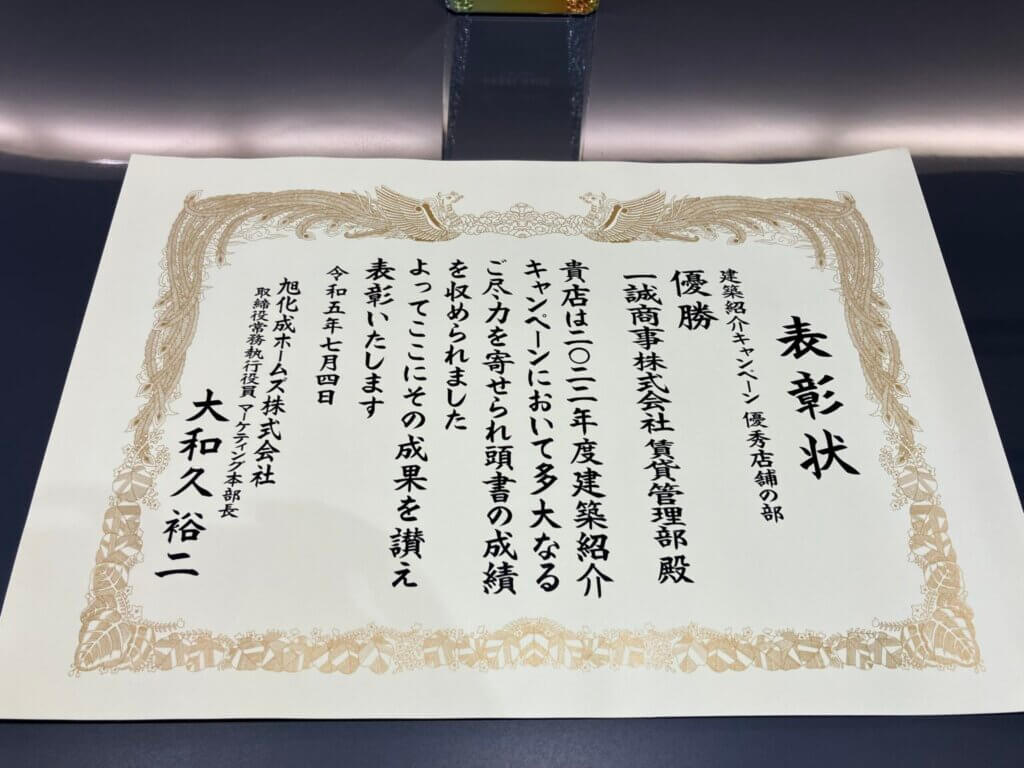 表彰状
建築紹介キャンペーン 優秀店舗の部
優勝
一誠商事株式会社 賃貸管理部 殿
貴店は二〇二二年度建築紹介
キャンペーンにおいて多大なる
ご尽力を寄せられ頭書の成績
を収められました
よってここにその成果を讃え
表彰いたします
令和五年七月四日
旭化成ホームズ株式会社
取締役常務執行役員 マーケティング本部長
大和久 裕二